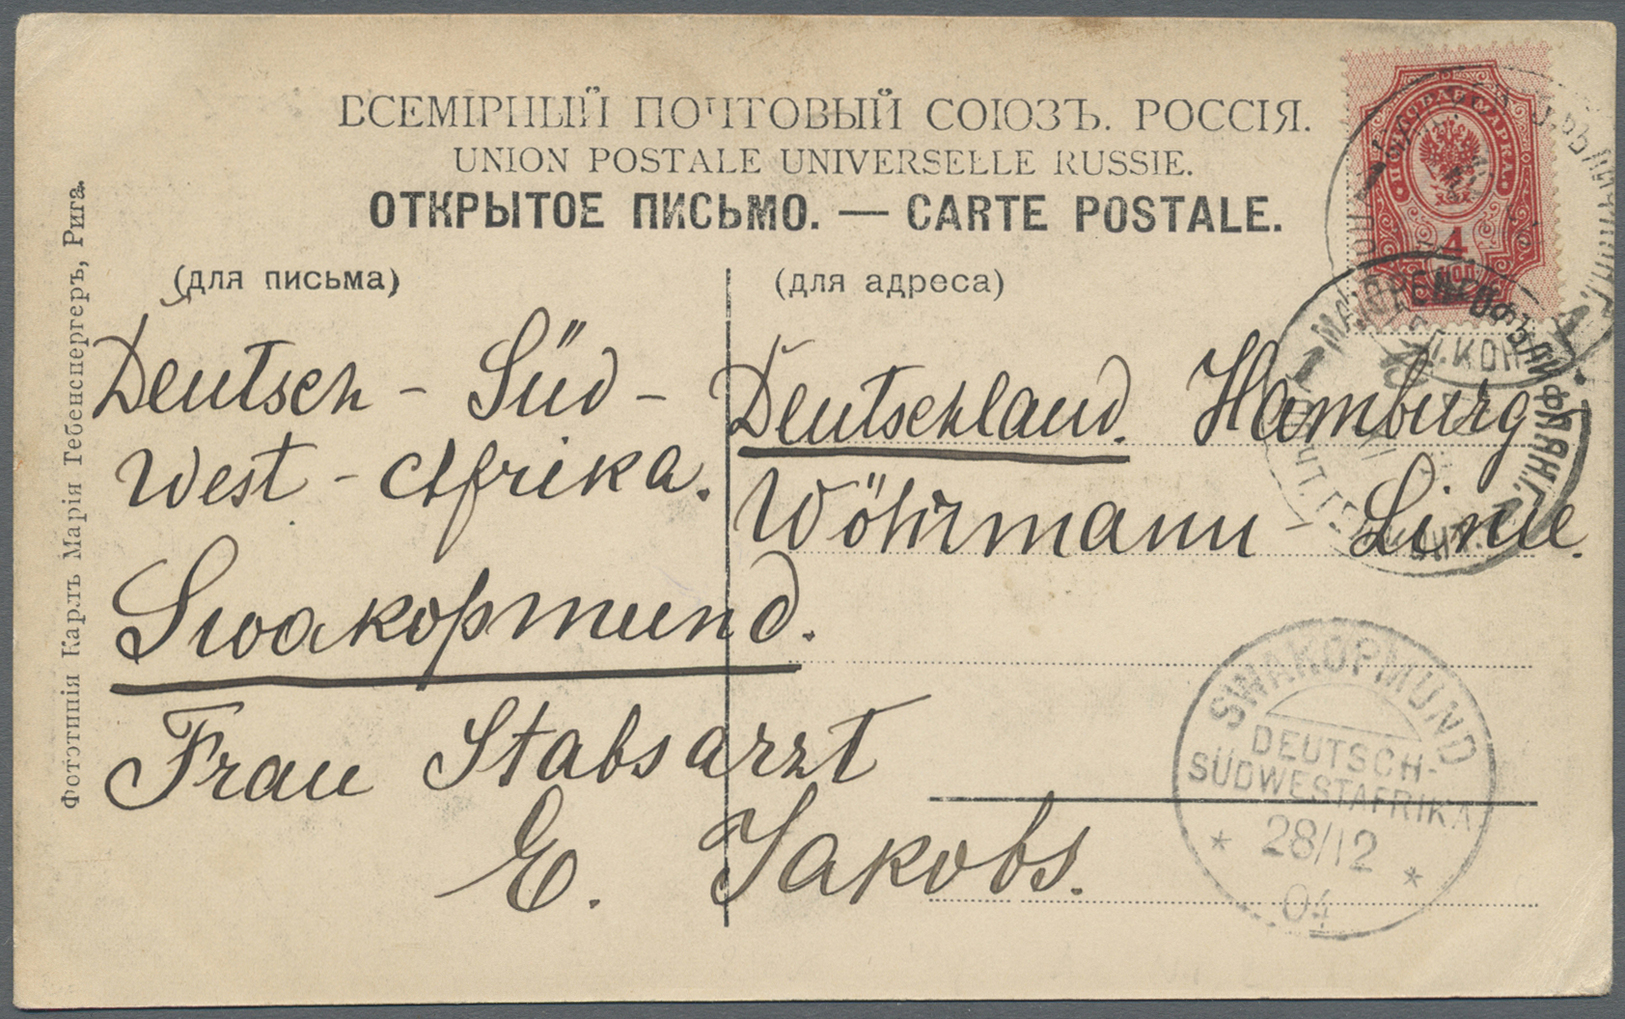 ВСЕМІРНЫЙ ПОЧТОВЫЙ СОЮЗЪ. РОССІЯ.
UNION POSTALE UNIVERSELLE RUSSIE.
ОТКРЫТОЕ ПИСЬМО. — CARTE POSTALE.
(для письма)
(для адреса)
Deutsch - Süd -
West - Afrika.
Swakopmund.
Frau Stabsarzt
E. Jakobs.
Deutschland. Hamburg
Wöhrmann - Linie.
Фототипія Карлъ Марія Гебенспергеръ, Рига.
ПОЧТОВАЯ МАРКА
4
КОП
МАРІЕНГОФЪ ЛИФЛЯН.Г.
SWAKOPMUND
DEUTSCH-
SÜDWESTAFRIKA
* 28/12 *
04